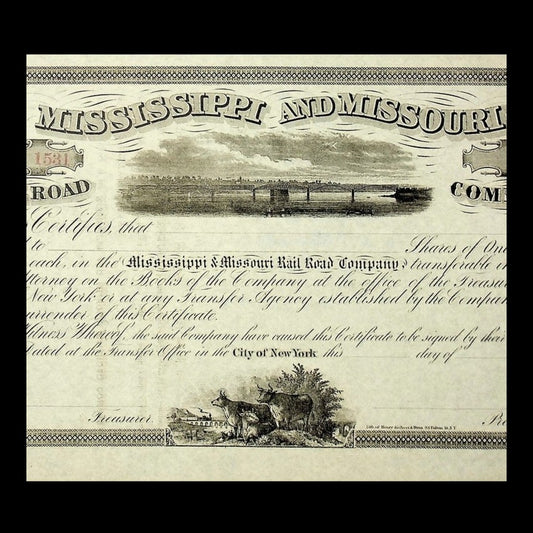 MISSISSIPPI AND MISSOURI
1531
ROAD COM
Certifies, that
to Shares of On
each, in the Mississippi & Missouri Rail Road Company, transferable in
ttorney on the Books of the Company at the office of the Treasur
New York or at any Transfer Agency established by the Compan
urrender of this Certificate.
Witness Whereof, the said Company have caused this Certificate to be signed by their
ated at the Transfer Office in the City of New York this day of
Treasurer. Pre